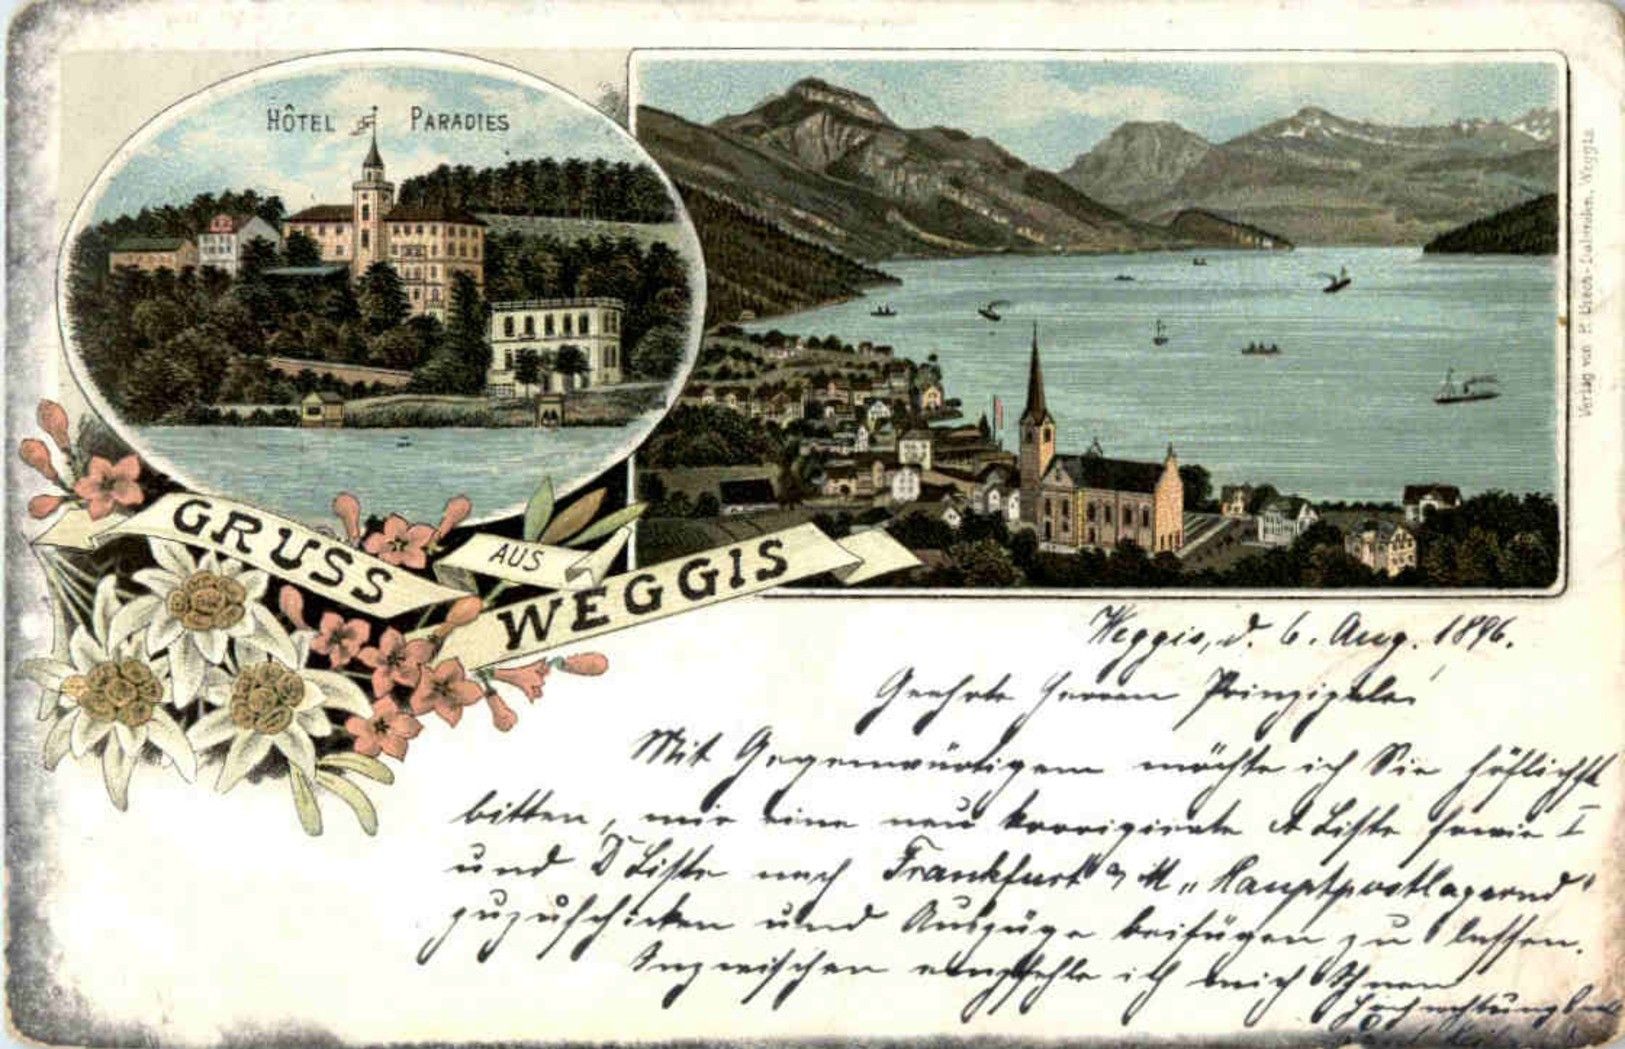 HÔTEL PARADIES
GRUSS
AUS
WEGGIS
Verlag von P. Weggis.
Weggis, d. 6. Aug. 1896.
Geehrte Herren Prinzipale!
Mit Gegenwärtigem möchte ich Sie höflichst
bitten, mir eine neu korrigierte A Liste sowie I
und D Liste nach Frankfurt a/M „Hauptpostlagernd"
zuzuschicken und Auszüge beifügen zu lassen.
Inzwischen empfehle ich mich Ihnen
Hochachtungsvoll